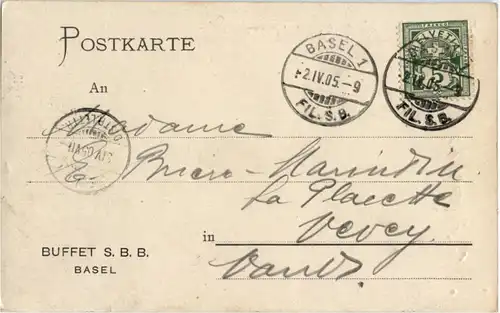 POSTKARTE
HELVETIA
FRANCO
5
BASEL 1
-2.IV.05.-9
FIL. S.B.
FIL. S.B.
An
Madame
La Placette
in Vevey
Vaud.
BUFFET S. B. B.
BASEL